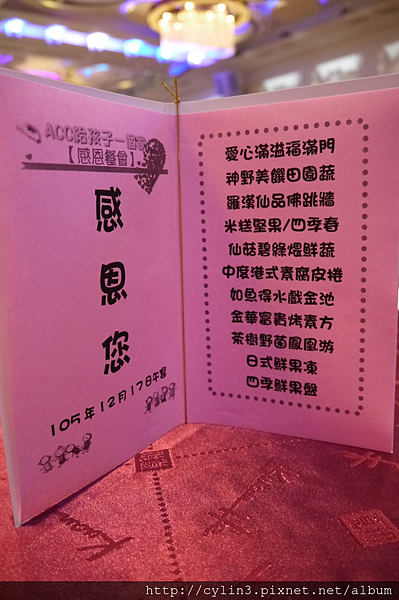 ACC給孩子一個家
【感恩餐會】
感恩您
105年12月17日午宴
愛心滿溢福滿門
神野美饌田園蔬
羅漢仙品佛跳牆
米糕堅果/四季春
仙菇碧綠煨鮮蔬
中度港式素腐皮捲
如魚得水戲金池
金華富貴烤素方
茶樹野菌鳳凰游
日式鮮果凍
四季鮮果盤
http://cylin3.pixnet.net/album